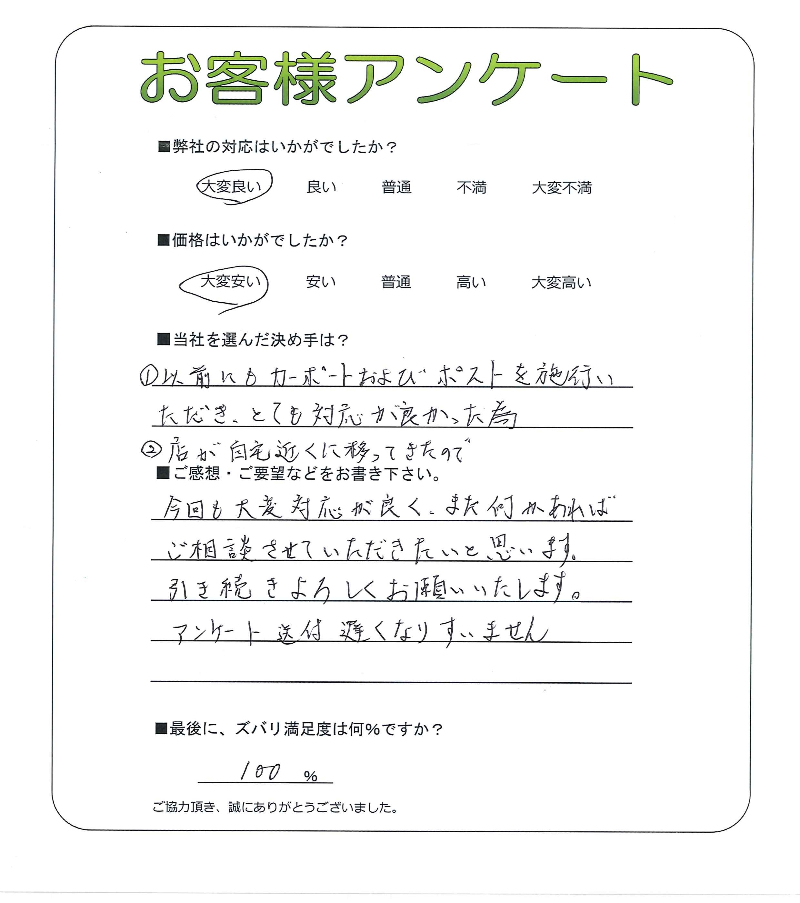 お客様アンケート
■弊社の対応はいかがでしたか？
大変良い 良い 普通 不満 大変不満
■価格はいかがでしたか？
大変安い 安い 普通 高い 大変高い
■当社を選んだ決め手は？
①以前にもカーポートおよびポストを施行い
ただき、とても対応が良かった為
②店が自宅近くに移ってきたので
■ご感想・ご要望などをお書き下さい。
今回も大変対応が良く、また何かあれば
ご相談させていただきたいと思います。
引き続きよろしくお願いいたします。
アンケート送付遅くなりすいません
■最後に、ズバリ満足度は何%ですか？
100 %
ご協力頂き、誠にありがとうございました。